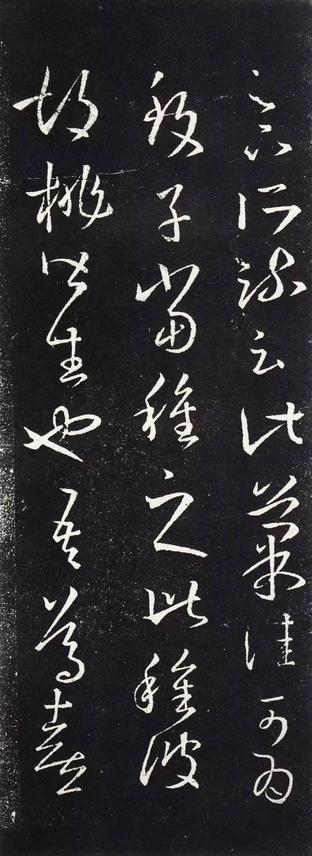 足下所疏云此菓佳可為
致子當種之此種彼
胡桃皆生也吾篤喜